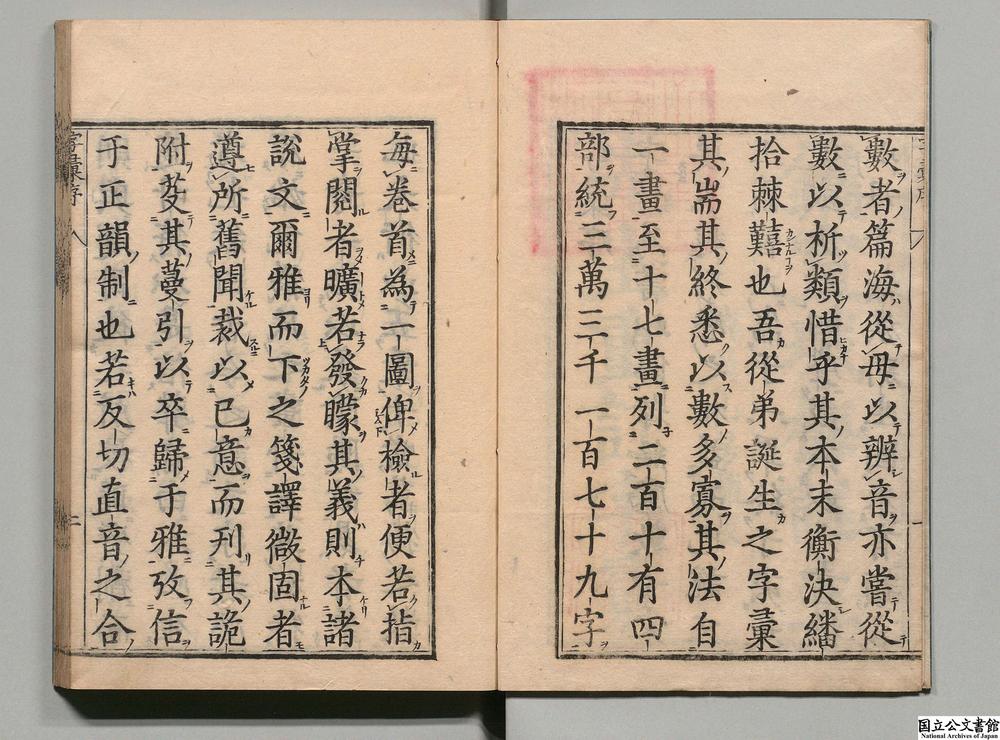 數者篇海從母以辨音亦嘗從
數以析類惜乎其本末衡決繙
拾棘囏也吾從弟誕生之字彙
其耑其終悉以數多寡其法自
一畫至十七畫列二百十有四
部統三萬三千一百七十九字
每卷首為一圖俾檢者便若指
掌閱者曠若發矇其義則本諸
說文爾雅而下之箋譯微固者
遵所舊聞裁以已意而刋其詭
附芟其蔓引以卒歸于雅攷信
于正韻制也若反切直音之合
字彙序 八
二
国立公文書館
National Archives of Japan